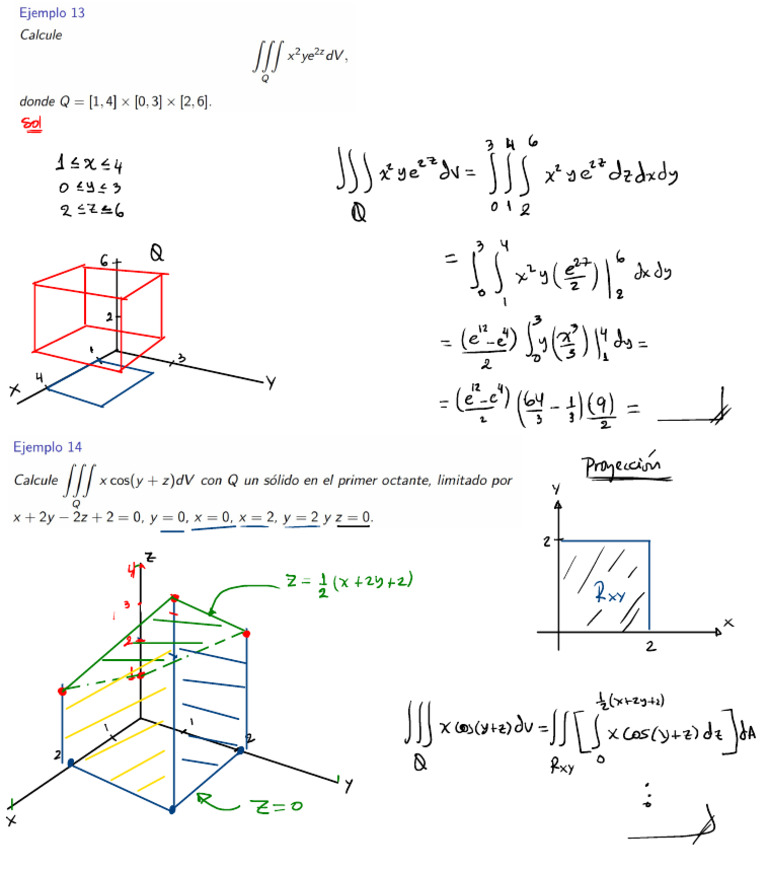 Ejemplo 13
Calcule
∭_Q x²ye^{2z}dV,
donde Q = [1, 4] × [0, 3] × [2, 6].
Sol
1 ≤ x ≤ 4
0 ≤ y ≤ 3
2 ≤ z ≤ 6
∭_Q x²ye^{2z}dv = ∫_0^3 ∫_1^4 ∫_2^6 x²ye^{2z}dzdxdy
= ∫_0^3 ∫_1^4 x²y(e^{2z}/2)|_2^6 dxdy
= (e^{12}-e^4)/2 ∫_0^3 y(x³/3)|_1^4 dy =
= (e^{12}-e^4)/2 (64/3 - 1/3)(9/2) =
6
Q
2
1
3
4
X
Y
Ejemplo 14
Calcule ∭_Q x cos(y + z)dV con Q un sólido en el primer octante, limitado por
x + 2y − 2z + 2 = 0, y = 0, x = 0, x = 2, y = 2 y z = 0.
Proyección
Y
2
Rxy
X
2
Z
4
3
2
1
Z = 1/2 (x+2y+2)
1
1
2
2
X
Y
Z=0
∭_Q x cos(y+z)dv = ∬_{Rxy} [∫_0^{1/2(x+2y+2)} x cos(y+z)dz]dA
⋮